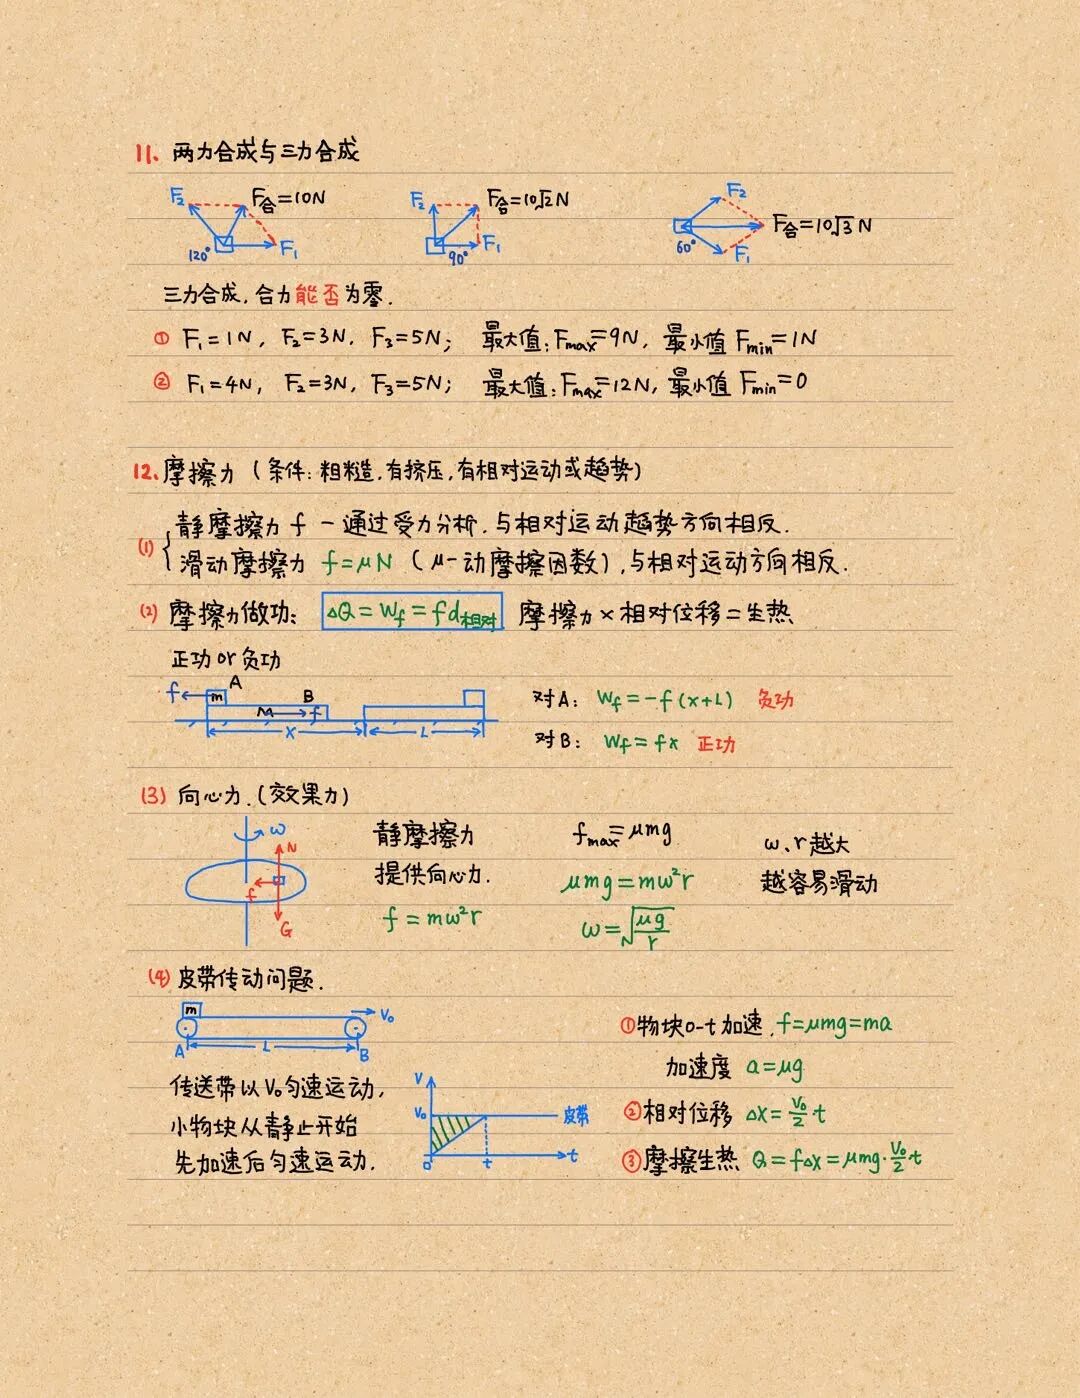 11. 两力合成与三力合成
F₂ F合=10N 120° F₁
F₂ F合=10√2N 90° F₁
F₂ F合=10√3N 60° F₁
三力合成,合力能否为零.
① F₁=1N, F₂=3N, F₃=5N; 最大值:Fmax=9N, 最小值 Fmin=1N
② F₁=4N, F₂=3N, F₃=5N; 最大值:Fmax=12N, 最小值 Fmin=0
12. 摩擦力 (条件:粗糙,有挤压,有相对运动或趋势)
(1) 静摩擦力 f — 通过受力分析,与相对运动趋势方向相反.
滑动摩擦力 f=μN (μ—动摩擦因数),与相对运动方向相反.
(2) 摩擦力做功: ΔQ=Wf=fd相对 摩擦力×相对位移=生热
正功or负功
f m A B M f x L
对A: Wf=-f(x+L) 负功
对B: Wf=fx 正功
(3) 向心力.(效果力)
ω N f G
静摩擦力
提供向心力.
f=mω²r
fmax=μmg
μmg=mω²r
ω=√(μg/r)
ω、r越大
越容易滑动
(4) 皮带传动问题.
m V₀ A L B
传送带以V₀匀速运动,
小物块从静止开始
先加速后匀速运动.
V V₀ 皮带 0 t t
①物块0-t加速,f=μmg=ma
加速度 a=μg
②相对位移 Δx=V₀/2 t
③摩擦生热 Q=fΔx=μmg·V₀/2 t